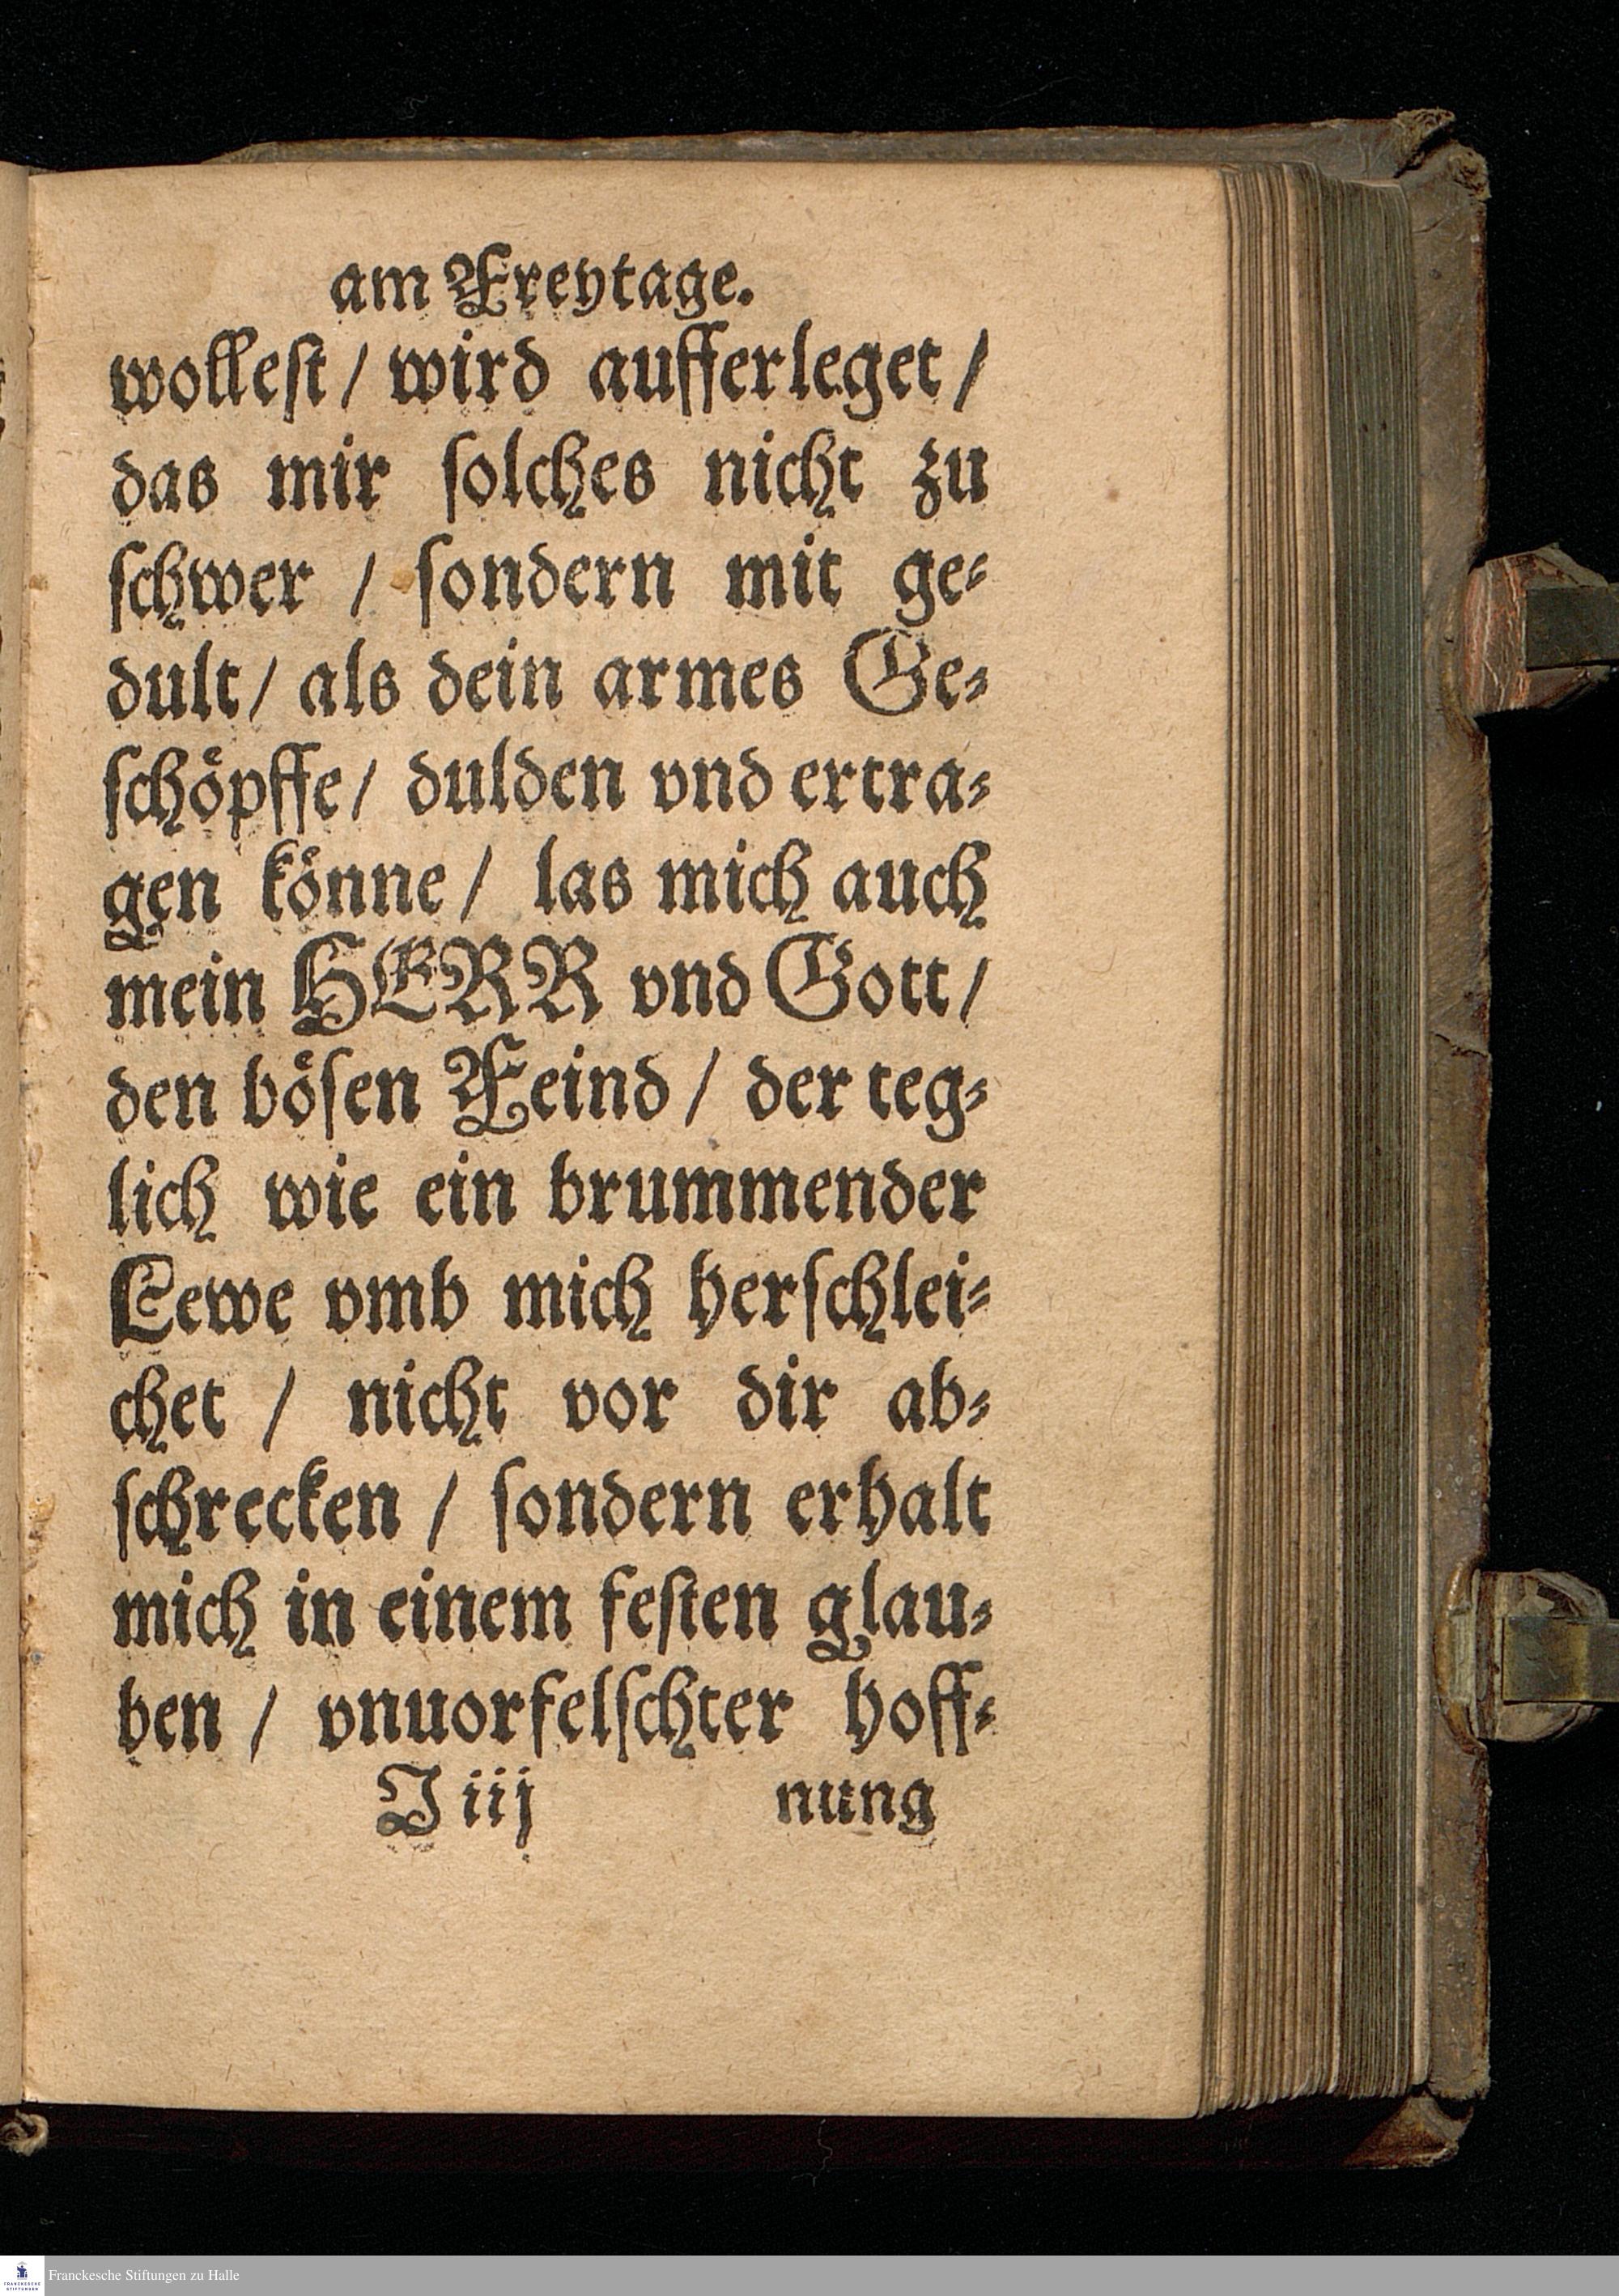 am Freytage.
wollest / wird aufferleget /
das mir solches nicht zu
schwer / sondern mit ge-
dult / als dein armes Ge-
schöpffe / dulden vnd ertra-
gen könne / las mich auch
mein HERR vnd Gott /
den bösen Feind / der teg-
lich wie ein brummender
Lewe vmb mich herschlei-
chet / nicht vor dir ab-
schrecken / sondern erhalt
mich in einem festen glau-
ben / vnuorfelschter hoff-
J iij nung
FRANCKESCHE STIFTUNGEN
Franckesche Stiftungen zu Halle